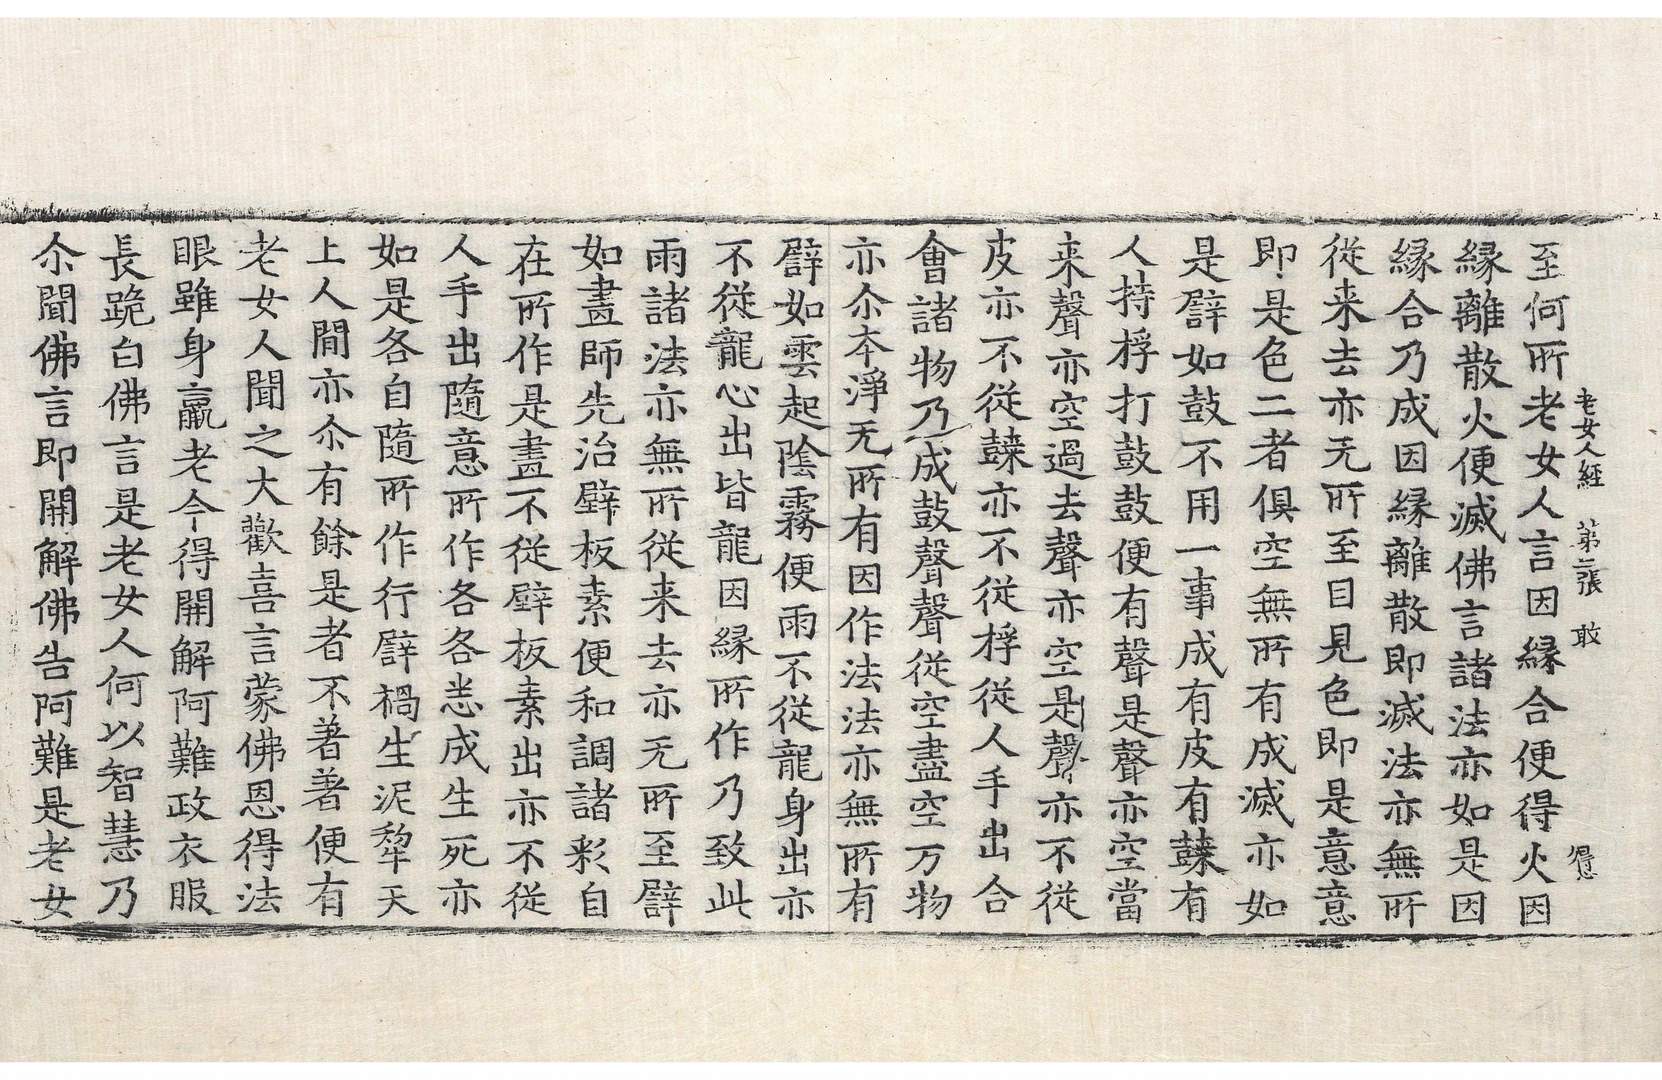 老女人經 苐二張 敢
至何所老女人言因緣合便得火因
緣離散火便滅佛言諸法亦如是因
緣合乃成因緣離散即滅法亦無所
從来去亦无所至目見色即是意意
即是色二者俱空無所有成滅亦如
是譬如鼓不用一事成有皮有有
人持桴打鼓鼓便有聲是聲亦空當
来聲亦空過去聲亦空是聲亦不從
皮亦不從亦不從桴從人手出合
會諸物乃成鼓聲聲從空盡空万物
亦尒夲淨无所有因作法法亦無所有
譬如雲起陰霧便雨不從龍身出亦
不從龍心出皆龍因緣所作乃致此
雨諸法亦無所從来去亦无所至譬
如畫師先治壁板素便和調諸彩自
在所作是畫不從壁板素出亦不從
人手出隨意所作各各悉成生死亦
如是各自隨所作行譬禍生泥犁天
上人間亦尒有餘是者不著著便有
老女人聞之大歡喜言蒙佛恩得法
眼雖身羸老今得開解阿難政衣服
長跪白佛言是老女人何以智慧乃
尒聞佛言即開解佛告阿難是老女